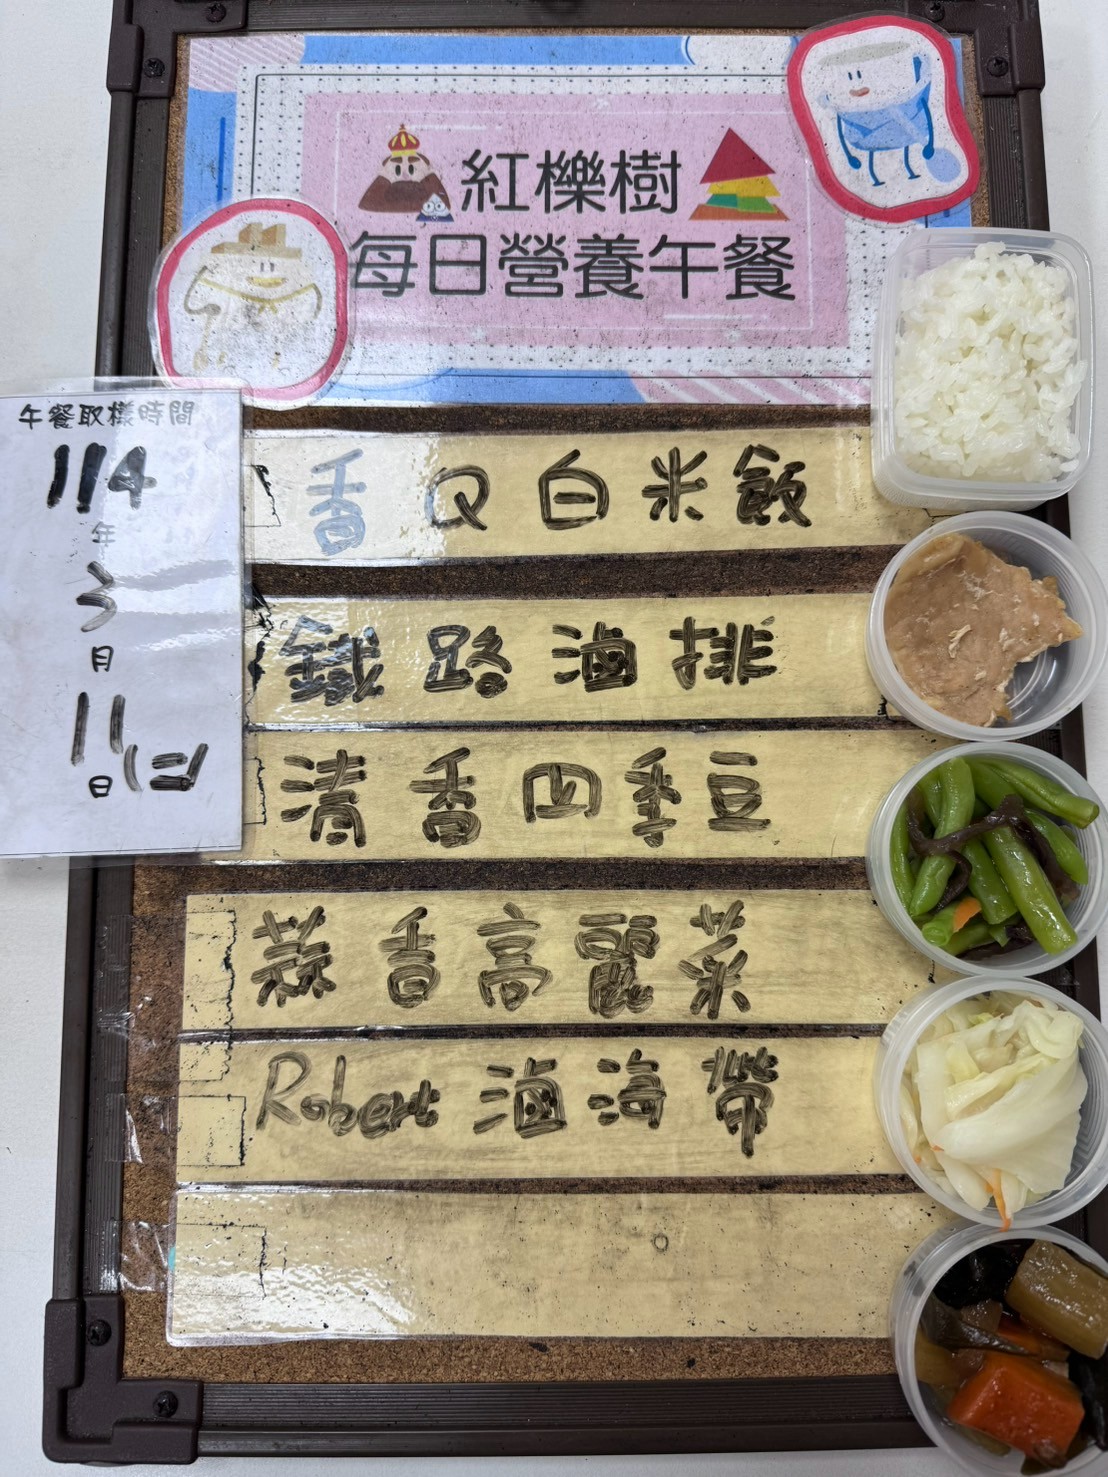 紅櫟樹
每日營養午餐
午餐取樣時間
114
年
3
月
11
日
(二)
香Q白米飯
鐵路滷排
清香四季豆
蒜香高麗菜
Robert滷海帶